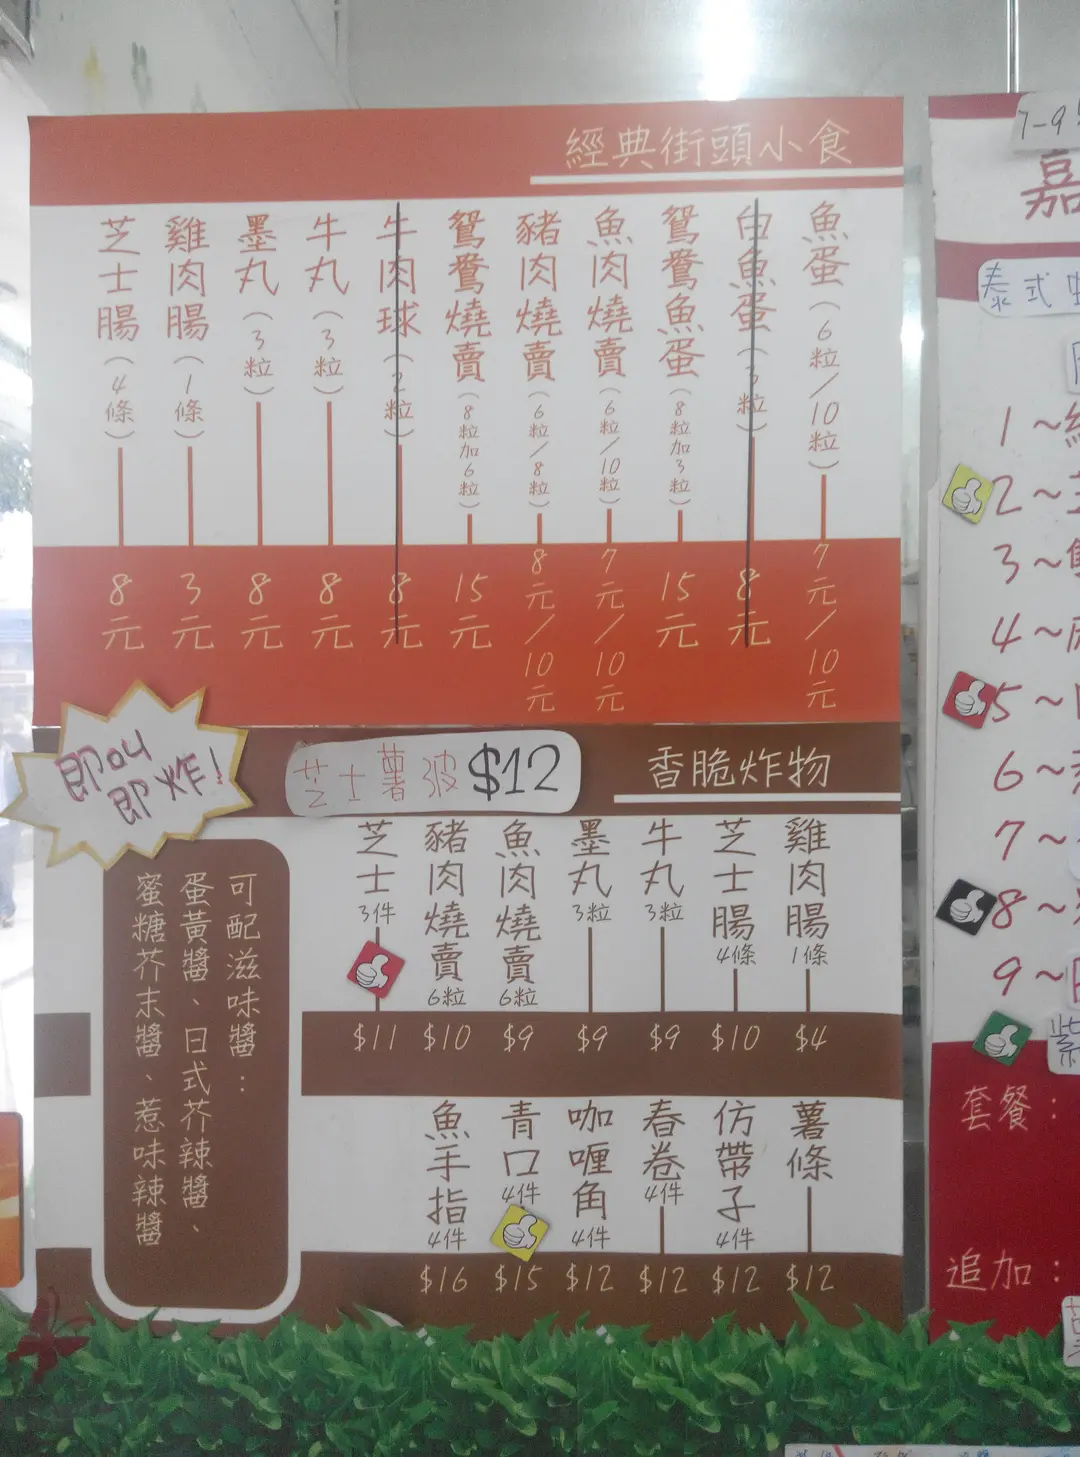 經典街頭小食
魚蛋（6粒/10粒） 7元/10元
白魚蛋（3粒） 8元
鴛鴦魚蛋（8粒加3粒） 15元
魚肉燒賣（6粒/10粒） 7元/10元
豬肉燒賣（6粒/8粒） 8元/10元
鴛鴦燒賣（8粒加6粒） 15元
牛肉球（2粒） 8元
牛丸（3粒） 8元
墨丸（3粒） 8元
雞肉腸（1條） 3元
芝士腸（4條） 8元
香脆炸物
芝士薯波 $12
即叫
即炸!
雞肉腸 1條 $4
芝士腸 4條 $10
牛丸 3粒 $9
墨丸 3粒 $9
魚肉燒賣 6粒 $9
豬肉燒賣 6粒 $10
芝士 3件 $11
薯條 $12
仿帶子 4件 $12
春卷 4件 $12
咖喱角 4件 $12
青口 4件 $15
魚手指 4件 $16
可配滋味醬：
蛋黃醬、日式芥辣醬、
蜜糖芥末醬、惹味辣醬
7-9
嘉
泰式
1~
2~
3~
4~
5~
6~
7~
8~
9~
紫
套餐：
追加：